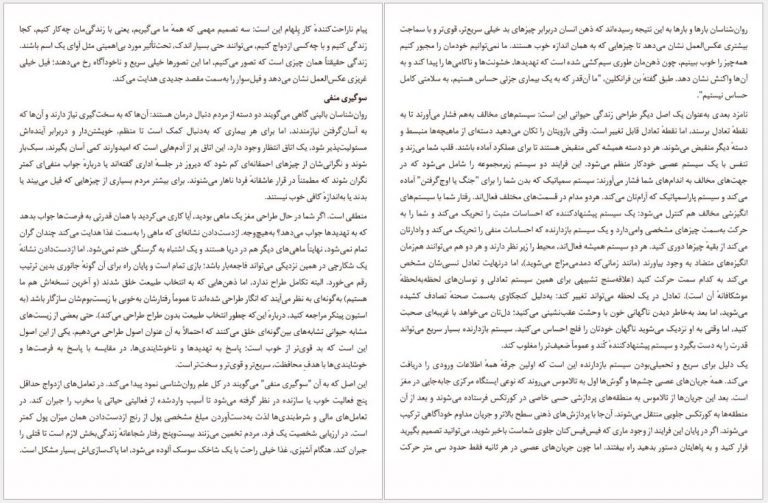 پیام ناراحت‌کنندهٔ کار پلهام این است: سه تصمیم مهمی که همهٔ ما می‌گیریم، یعنی با زندگی‌مان چه‌کار کنیم، کجا
زندگی کنیم و با چه‌کسی ازدواج کنیم، می‌توانند حتی بسیار اندک، تحت‌تأثیر مورد بی‌اهمیتی مثل آوای یک اسم باشند.
زندگی حقیقتاً همان چیزی است که تصور می‌کنیم، اما این تصورها خیلی سریع و ناخودآگاه رخ می‌دهند؛ فیل خیلی
غریزی عکس‌العمل نشان می‌دهد و فیل‌سوار را به‌سمت مقصد جدیدی هدایت می‌کند.
سوگیری منفی
روان‌شناسان بالینی گاهی می‌گویند دو دسته از مردم دنبال درمان هستند: آن‌ها که به سخت‌گیری نیاز دارند و آن‌ها که
به آسان‌گرفتن نیازمندند. اما برای هر بیماری که به‌دنبال کمک است تا منظم، خویشتن‌دار و دربرابر آینده‌اش
مسئولیت‌پذیر شود، یک اتاق انتظار وجود دارد. این اتاق پر از آدم‌هایی است که امیدوارند کمی آسان بگیرند، سبک‌بار
شوند و نگرانی‌شان از چیزهای احمقانه‌ای کم شود که دیروز در جلسهٔ اداری گفته‌اند یا دربارهٔ جواب منفی‌ای کمتر
نگران شوند که مطمئناً در قرار عاشقانهٔ فردا ناهار می‌شنوند. برای بیشتر مردم بسیاری از چیزهایی که فیل می‌بیند یا
بدند یا به‌اندازهٔ کافی خوب نیستند.
منطقی است. اگر شما در حال طراحی مغز یک ماهی بودید، آیا کاری می‌کردید با همان قدرتی به فرصت‌ها جواب بدهد
که به تهدیدها جواب می‌دهد؟ به‌هیچ‌وجه. ازدست‌دادن نشانه‌ای که ماهی را به‌سمت غذا هدایت می‌کند چندان گران
تمام نمی‌شود، نهایتاً ماهی‌های دیگر هم در دریا هستند و یک اشتباه به گرسنگی ختم نمی‌شود. اما ازدست‌دادن نشانهٔ
یک شکارچی در همین نزدیکی می‌تواند فاجعه‌بار باشد؛ بازی تمام است و پایان راه برای آن گونهٔ جانوری بدین ترتیب
رقم می‌خورد. البته تکامل طراح ندارد، اما ذهن‌هایی که به انتخاب طبیعت خلق شدند (و آخرین نسخه‌اش هم ما
هستیم) به‌گونه‌ای به نظر می‌آیند که انگار طراحی شده‌اند تا عموماً رفتارشان به‌خوبی با زیست‌بوم‌شان سازگار باشد (به
استیون پینکر مراجعه کنید. دربارهٔ این که چطور انتخاب طبیعت بدون طراح طراحی می‌کند). حتی بعضی از زیست‌های
مشابه حیوانی تشابه‌های بین‌گونه‌ای خلق می‌کنند که احتمالاً به آن عنوان اصول طراحی می‌دهیم. یکی از این اصول
این است که بد قوی‌تر از خوب است؛ پاسخ به تهدیدها و ناخوشایندی‌ها، در مقایسه با پاسخ به فرصت‌ها و
خوشایندی‌ها با هدفِ محافظت، سریع‌تر و قوی‌تر و سخت‌تر است.
این اصل که به آن "سوگیری منفی" می‌گویند در کل علم روان‌شناسی نمود پیدا می‌کند. در تعامل‌های ازدواج حداقل
پنج فعالیت خوب یا سازنده در نظر گرفته می‌شود تا آسیب واردشده از فعالیتی حیاتی یا مخرب را جبران کند. در
تعامل‌های مالی و شرط‌بندی‌ها لذت به‌دست‌آوردن مبلغ مشخصی پول از رنج ازدست‌دادن همان میزان پول کمتر
است. در ارزیابی شخصیت یک فرد، مردم تخمین می‌زنند بیست‌وپنج رفتار شجاعانهٔ زندگی‌بخش لازم است تا قتلی را
جبران کند. هنگام آشپزی، غذا خیلی راحت با یک شاخک سوسک آلوده می‌شود، اما پاک‌سازی‌اش بسیار مشکل است.
روان‌شناسان بارها و بارها به این نتیجه رسیده‌اند که ذهن انسان دربرابر چیزهای بد خیلی سریع‌تر، قوی‌تر و با سماجت
بیشتری عکس‌العمل نشان می‌دهد تا چیزهایی که به همان اندازه خوب هستند. ما نمی‌توانیم خودمان را مجبور کنیم
همه‌چیز را خوب ببینیم، چون ذهن‌مان طوری سیم‌کشی شده است که تهدیدها، خشونت‌ها و ناکامی‌ها را پیدا کند و به
آن‌ها واکنش نشان دهد. طبق گفتهٔ بن فرانکلین، "ما آن‌قدر که به یک بیماری جزئی حساس هستیم، به سلامتی کامل
حساس نیستیم".
نامزد بعدی به‌عنوان یک اصل دیگر طراحی زندگی حیوانی این است: سیستم‌های مخالف به‌هم فشار می‌آورند تا به
نقطهٔ تعادل برسند، اما نقطهٔ تعادل قابل تغییر است. وقتی بازویتان را تکان می‌دهید دسته‌ای از ماهیچه‌ها منبسط و
دستهٔ دیگر منقبض می‌شوند. هر دو دسته همیشه کمی منقبض هستند تا برای عملکرد آماده باشند. قلب شما می‌زند و
تنفس با یک سیستم عصبی خودکار منظم می‌شود. این فرایند دو سیستم زیرمجموعه را شامل می‌شود که در
جهت‌های مخالف به اندام‌های شما فشار می‌آورند: سیستم سمپاتیک که بدن شما را برای "جنگ یا اوج‌گرفتن" آماده
می‌کند و سیستم پاراسمپاتیک که آرام‌تان می‌کند. هردو مدام در قسمت‌های مختلف فعال‌اند. رفتار شما با سیستم‌های
انگیزشی مخالف هم کنترل می‌شود: یک سیستم پیشنهاددهنده که احساسات مثبت را تحریک می‌کند و شما را به
حرکت به‌سمت چیزهای مشخصی وامی‌دارد و یک سیستم بازدارنده که احساسات منفی را تحریک می‌کند و وادارتان
می‌کند از بقیهٔ چیزها دوری کنید. هر دو سیستم همیشه فعال‌اند، محیط را زیر نظر دارند و هر دو هم می‌توانند هم‌زمان
انگیزه‌های متضاد به وجود بیاورند (مانند زمانی‌که دمدمی‌مزاج می‌شوید)، اما درنهایت تعادل نسبی‌شان مشخص
می‌کند به کدام سمت حرکت کنید (علاقه‌سنج تشبیهی برای همین سیستم تعادلی و نوسان‌های لحظه‌به‌لحظهٔ
موشکافانهٔ آن است). تعادل در یک لحظه می‌تواند تغییر کند: به‌دلیل کنجکاوی به‌سمت صحنهٔ تصادف کشیده
می‌شوید، اما بعد به‌خاطر دیدن ناگهانی خون با وحشت عقب‌نشینی می‌کنید؛ دل‌تان می‌خواهد با غریبه‌ای صحبت
کنید، اما وقتی به او نزدیک می‌شوید ناگهان خودتان را فلج احساس می‌کنید. سیستم بازدارنده بسیار سریع می‌تواند
قدرت را به دست بگیرد و سیستم پیشنهاددهندهٔ کُند و عموماً ضعیف‌تر را مغلوب کند.
یک دلیل برای سریع و تحمیلی‌بودن سیستم بازدارنده این است که اولین جرقهٔ همهٔ اطلاعات ورودی را دریافت
می‌کند. همهٔ جریان‌های عصبی چشم‌ها و گوش‌ها اول به تالاموس می‌روند که نوعی ایستگاه مرکزی جابه‌جایی در مغز
است. بعد این جریان‌ها از تالاموس به منطقه‌های پردازشی حسی خاصی در کورتکس فرستاده می‌شوند و بعد از آن
منطقه‌ها به کورتکس جلویی منتقل می‌شوند. آن‌جا با پردازش‌های ذهنی سطح بالاتر و جریان مداوم خودآگاهی ترکیب
می‌شوند. اگر در پایان این فرایند از وجود ماری که فیس‌فیس‌کنان جلوی شماست باخبر شوید، می‌توانید تصمیم بگیرید
فرار کنید و به پاهایتان دستور بدهید راه بیفتند. اما چون جریان‌های عصبی در هر ثانیه فقط حدود سی متر حرکت